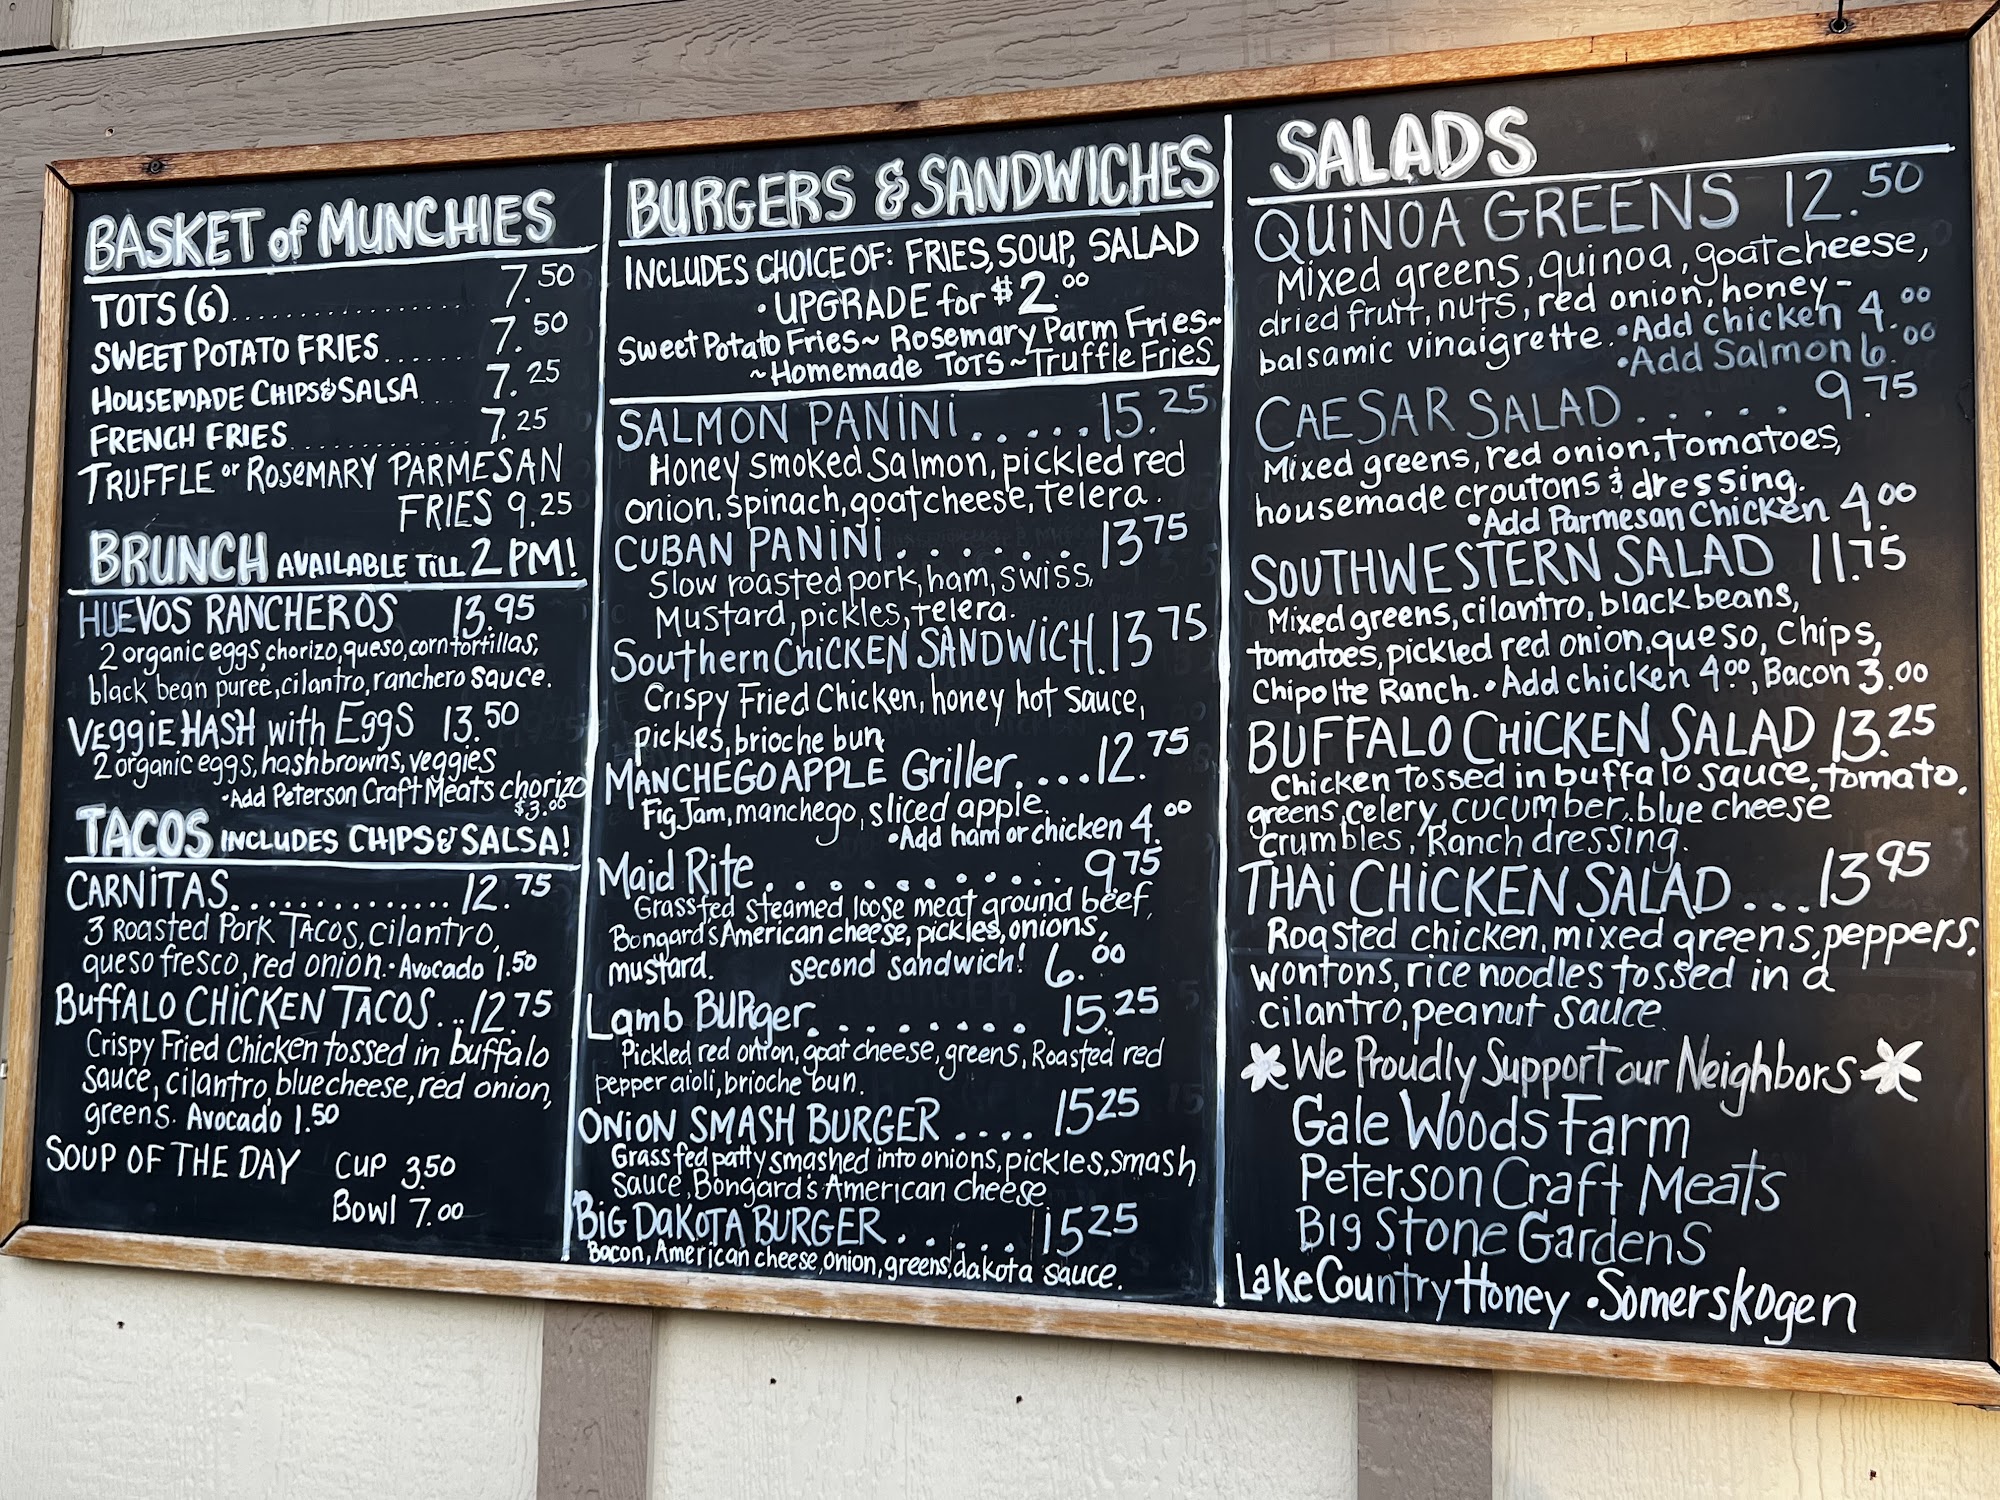 BASKET of MUNCHIES
TOTS (6)................. 7.50
SWEET POTATO FRIES...... 7.50
HOUSEMADE CHIPS & SALSA.. 7.25
FRENCH FRIES............. 7.25
TRUFFLE or ROSEMARY PARMESAN
FRIES 9.25
BRUNCH AVAILABLE TILL 2 PM!
HUEVOS RANCHEROS 13.95
2 organic eggs, chorizo, queso, corn tortillas,
black bean puree, cilantro, ranchero sauce.
VEGGIE HASH with EGGS 13.50
2 organic eggs, hashbrowns, veggies
•Add Peterson Craft Meats chorizo
$3.00
TACOS INCLUDES CHIPS & SALSA!
CARNITAS.............. 12.75
3 Roasted Pork Tacos, cilantro,
queso fresco, red onion. •Avocado 1.50
BUFFALO CHICKEN TACOS... 12.75
Crispy Fried Chicken tossed in buffalo
sauce, cilantro, blue cheese, red onion,
greens. Avocado 1.50
SOUP OF THE DAY CUP 3.50
Bowl 7.00
BURGERS & SANDWICHES
INCLUDES CHOICE OF: FRIES, SOUP, SALAD
•UPGRADE for $2.00
Sweet Potato Fries~ Rosemary Parm Fries~
~Homemade TOTS ~Truffle Fries
SALMON PANINI.....15.25
Honey smoked Salmon, pickled red
onion, spinach, goat cheese, telera.
CUBAN PANINI....... 13.75
Slow roasted pork, ham, swiss,
Mustard, pickles, telera.
Southern CHICKEN SANDWICH.13.75
Crispy Fried Chicken, honey hot sauce,
pickles, brioche bun
MANCHEGO APPLE Griller....12.75
Fig Jam, manchego, sliced apple.
•Add ham or chicken 4.00
Maid Rite............ 9.75
Grassfed steamed loose meat ground beef,
Bongard's American cheese, pickles, onions,
mustard. second sandwich! 6.00
Lamb BURger......... 15.25
Pickled red onion, goat cheese, greens, Roasted red
pepper aioli, brioche bun.
ONION SMASH BURGER.... 15.25
Grassfed patty smashed into onions, pickles, smash
sauce, Bongard's American cheese
BIG DAKOTA BURGER...... 15.25
Bacon, American cheese, onion, greens, dakota sauce.
SALADS
QUINOA GREENS 12.50
Mixed greens, quinoa, goat cheese,
dried fruit, nuts, red onion, honey-
balsamic vinaigrette. •Add chicken 4.00
•Add Salmon 6.00
CAESAR SALAD...... 9.75
Mixed greens, red onion, tomatoes,
housemade croutons & dressing.
•Add Parmesan Chicken 4.00
SOUTHWESTERN SALAD 11.75
Mixed greens, cilantro, black beans,
tomatoes, pickled red onion, queso, chips,
Chipolte Ranch. •Add chicken 4.00, Bacon 3.00
BUFFALO CHICKEN SALAD 13.25
Chicken tossed in buffalo sauce, tomato,
greens, celery, cucumber, blue cheese
crumbles, Ranch dressing.
THAI CHICKEN SALAD...13.95
Roasted chicken, mixed greens, peppers,
wontons, rice noodles tossed in a
cilantro, peanut sauce.
We Proudly Support our Neighbors
Gale Woods Farm
Peterson Craft Meats
Big Stone Gardens
Lake Country Honey •Somerskogen